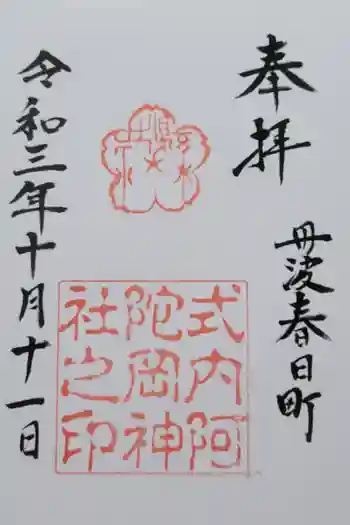 奉拝
丹波春日町
式内阿
陀岡神
社之印
令和三年十月十一日